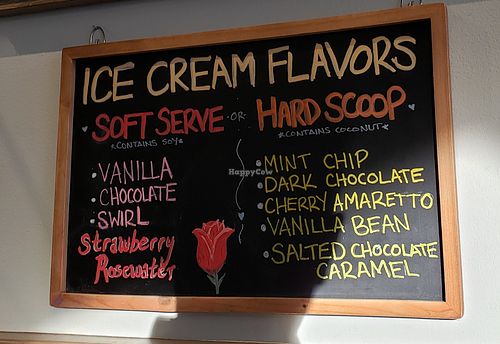 ICE CREAM FLAVORS
SOFT SERVE -OR- HARD SCOOP
*CONTAINS SOY* *CONTAINS COCONUT*
• VANILLA
• CHOCOLATE
• SWIRL
Strawberry
Rosewater
HappyCow
• MINT CHIP
• DARK CHOCOLATE
• CHERRY AMARETTO
• VANILLA BEAN
• SALTED CHOCOLATE
CARAMEL